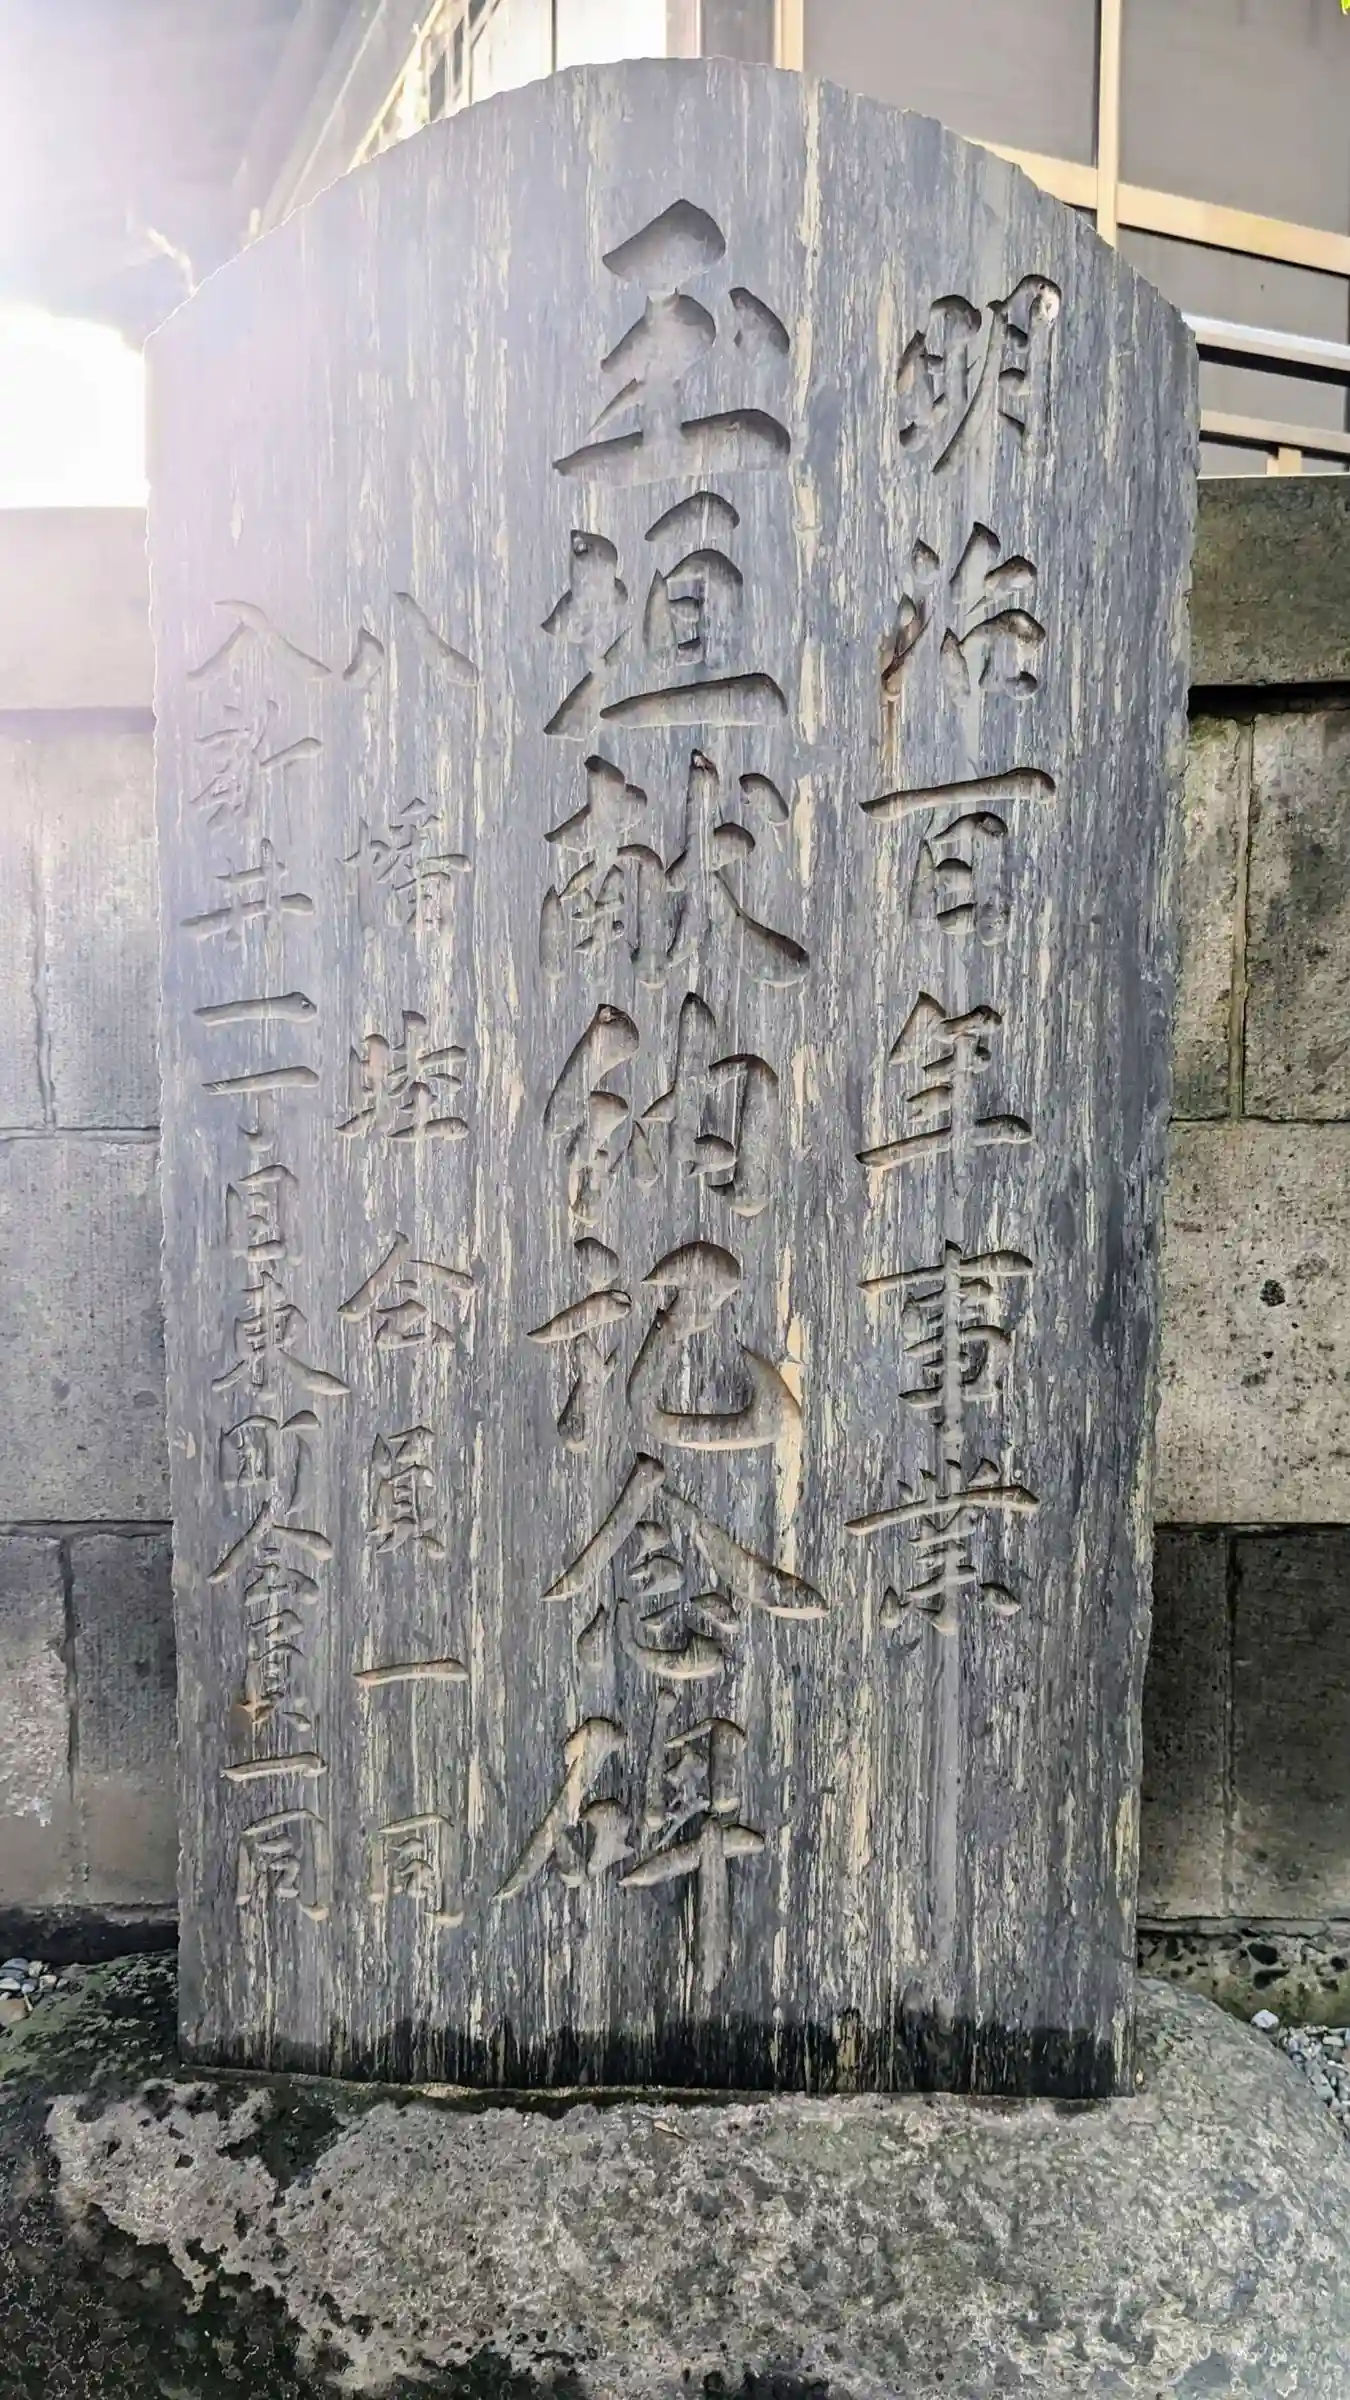 明治百年事業
玉垣献納記念碑
八幡睦会員一同
入新井一丁目東町会員一同